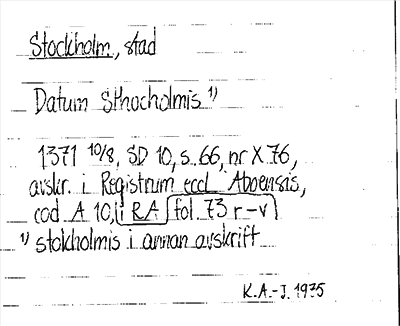 Stockholm, stad
Datum Sthocholmis 1)
1371 10/8, SD 10, s. 66, nr X 76,
avskr. i Registrum eccl Aboensis,
cod A 10, i RA fol. 73 r-v
1) stokholmis i annan avskrift
K.A.-J. 1975